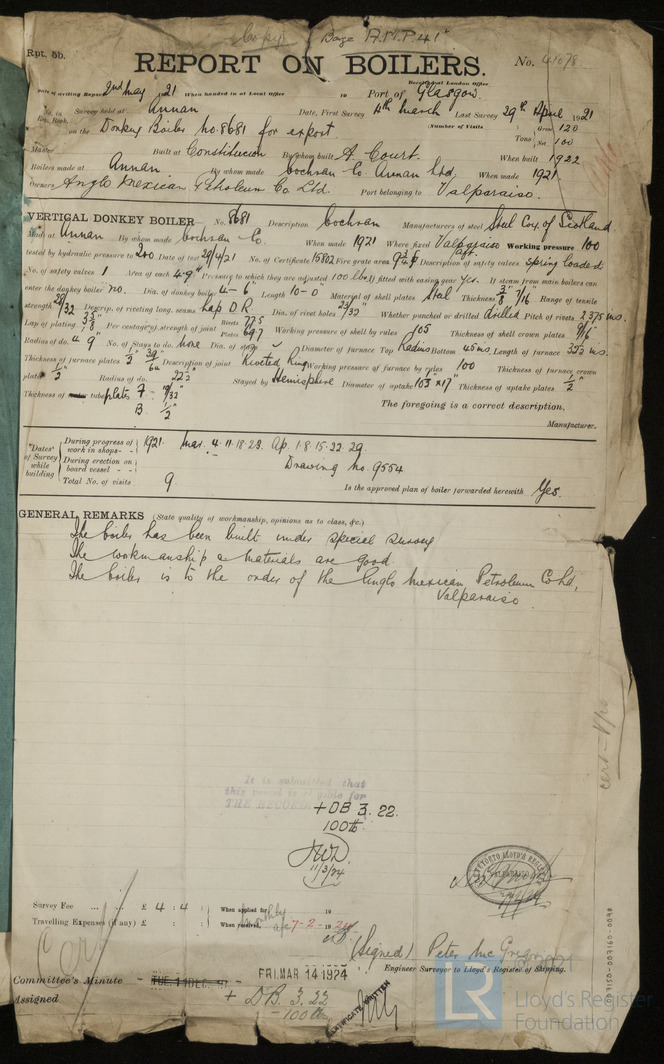 Copy Barge A.M.P. 41
Rpt. 5b.
REPORT ON BOILERS.
No. 41078
Received at London Office
Date of writing Report 2nd May 1921 When handed in at Local Office 19 Port of Glasgow.
No. in Reg. Book. Survey held at Annan Date, First Survey 4th March Last Survey 29th April 1921
on the Donkey Boiler No. 8681 for export (Number of Visits Tons Gross 120 Net 100
Master Built at Constitucion By whom built A Court. When built 1922
Boilers made at Annan. By whom made Cochran Co. Annan Ltd. When made 1921.
Owners Anglo Mexican Petroleum Co Ltd. Port belonging to Valparaiso.
VERTICAL DONKEY BOILER No. 8681 Description Cochran Manufacturers of steel Steel Coy. of Scotland
Made at Annan By whom made Cochran Co. When made 1921 Where fixed Valparaiso aft. Working pressure 100
tested by hydraulic pressure to 200 Date of test 29/4/21 No. of Certificate 15802 Fire grate area Description of safety valves spring loaded
No. of safety valves 1 Area of each 4.9" Pressure to which they are adjusted 100 lbs If fitted with easing gear yes. If steam from main boilers can
enter the donkey boiler no. Dia. of donkey boiler 4-6" Length 10-0" Material of shell plates Steel Thickness 3/8" 7/16 Range of tensile
strength 28/32 Descrip. of riveting long. seams Lap D.R Dia. of rivet holes 23/32" Whether punched or drilled drilled Pitch of rivets 2.375 ins.
Lap of plating Per centage of strength of joint Rivets 77.5 Plates 69.7 Working pressure of shell by rules 105 Thickness of shell crown plates 9/16"
Radius of do. 4 9 No. of Stays to do. none Dia. of stays Diameter of furnace Top Radius Bottom 45 ins. Length of furnace
Thickness of furnace plates Description of joint Riveted Ring Working pressure of furnace by rules 100 Thickness of furnace crown
plates 1/2" Radius of do. 22 1/2" Stayed by Hemisphere Diameter of uptake 10 1/8" x 17" Thickness of uptake plates 1/2"
Thickness of tube plates F. 19/32"
B 1/2"
The foregoing is a correct description,
Manufacturer.
Dates of Survey while building
During progress of work in shops - - 1921. Mar. 4. 11. 18. 23. Ap. 1. 8. 15. 22. 29.
During erection on board vessel - - Drawing No. 9554
Total No. of visits 9 Is the approved plan of boiler forwarded herewith Yes.
GENERAL REMARKS (State quality of workmanship, opinions as to class, &c.)
The boiler has been built under special survey
The workmanship & materials are good.
The boiler is to the order of the Anglo Mexican Petroleum Co Ltd,
Valparaiso.
cert
It is submitted that
this vessel is eligible for
THE RECORD
+ DB 3. 22.
100 lb.
JWD.
11/3/24
LLOYD'S REGISTER
Survey Fee ... ... £ 4 : 4 : When applied for, monthly 19
Travelling Expenses (if any) £ : : When received, 7-2-1924
(Signed) Peter McGregor
Engineer Surveyor to Lloyd's Register of Shipping.
Cert
Committee's Minute TUE. 14 DEC. FRI. MAR 14 1924
Assigned + DB 3. 22
- 100 lb
CERTIFICATE WRITTEN
007150-007160-0098
LR Lloyd's Register
Foundation